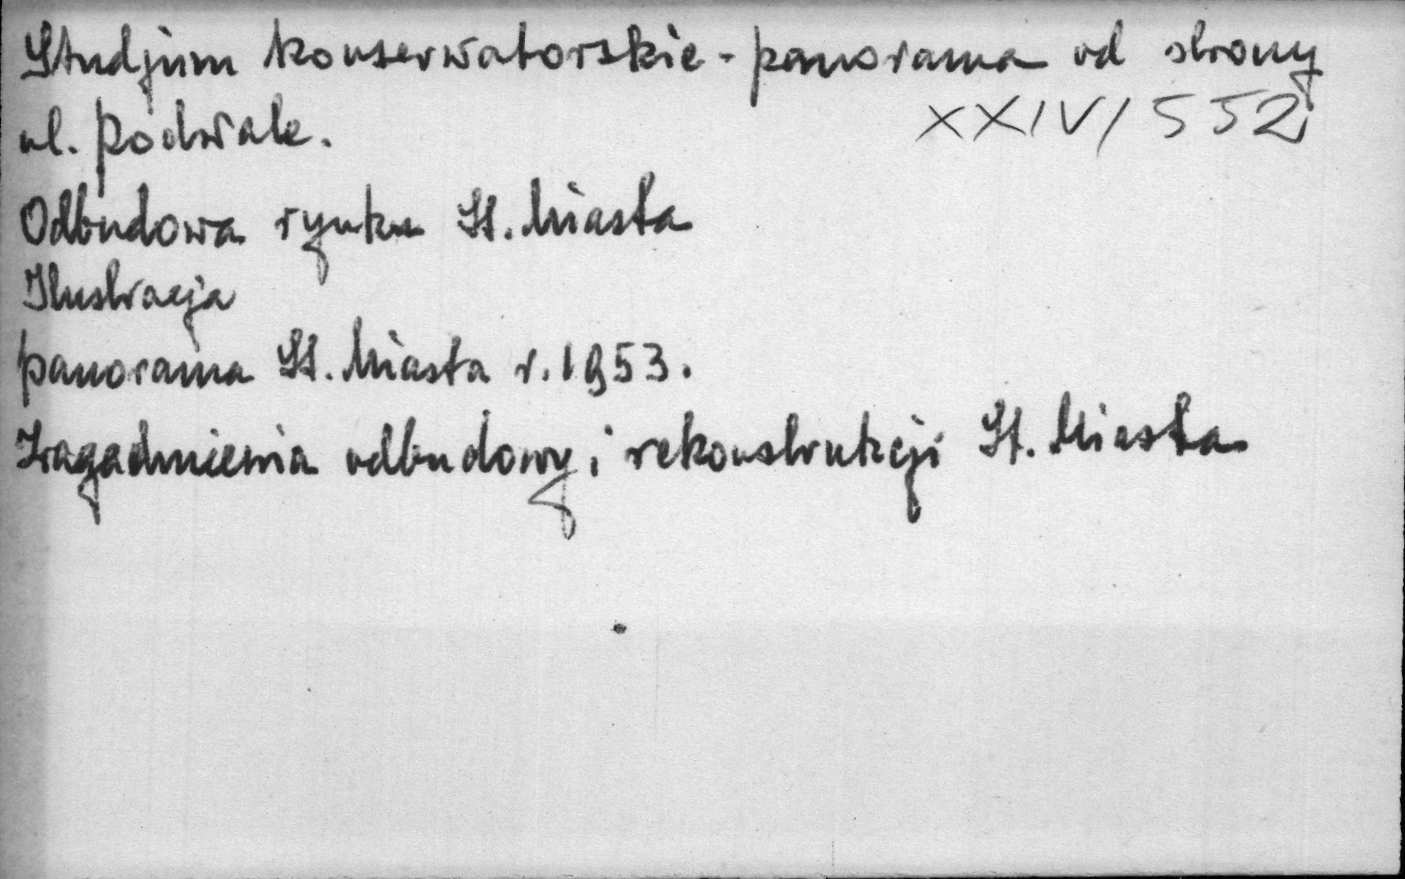 Studjum konserwatorskie - panorama od strony
ul. Podwale.
XXIV/552
Odbudowa rynku St. Miasta
Ilustracja
panorama St. Miasta r. 1953.
Zagadnienia odbudowy i rekonstrukcji St. Miasta